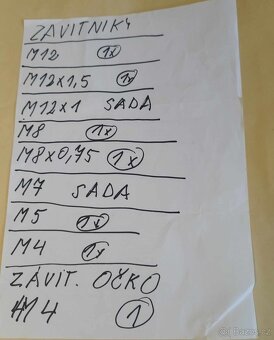 ZÁVITNIKY
M12 1x
M12x1,5 1x
M12x1 SADA
M8 1x
M8x0,75 1x
M7 SADA
M5 1x
M4 1x
ZÁVIT. OČKO
M4 1